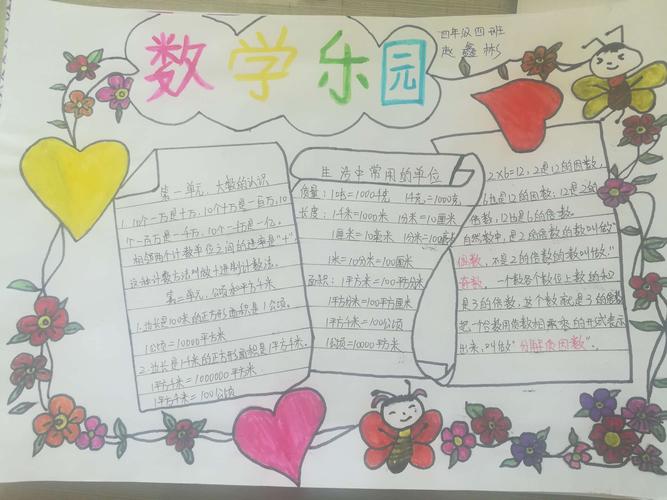 数学乐园
四年级四班
赵鑫彬
第一单元,大数的认识
1.10个一万是十万,10个十万是一百万,10
个一百万是一千万,10个一千万是一亿。
相邻两个计数单位之间的进率是“十”,
这种计数方法叫做十进制计数法。
第二单元,公顷和平方千米
1.边长是100米的正方形面积是1公顷。
1公顷=10000平方米
2.边长是1千米的正方形面积是1平方千米。
1平方千米=1000000平方米
1平方千米=100公顷
生活中常用的单位
质量:1吨=1000千克 1千克=1000克
长度:1千米=1000米 1分米=10厘米
1厘米=10毫米 1分米=100毫米
1米=10分米=100厘米
面积:1平方米=100平方分米
1平方分米=100平方厘米
1平方千米=100公顷
1公顷=10000平方米
2×6=12,2是12的因数,
6也是12的因数,12是2的
倍数,12也是6的倍数。
自然数中,是2的倍数的数叫做“
偶数,不是2的倍数的数叫做“
奇数,一个数各个数位上数的和
是3的倍数,这个数就是3的倍数
把一个合数用质数相乘的形式表示
出来,叫做“分解质因数”。